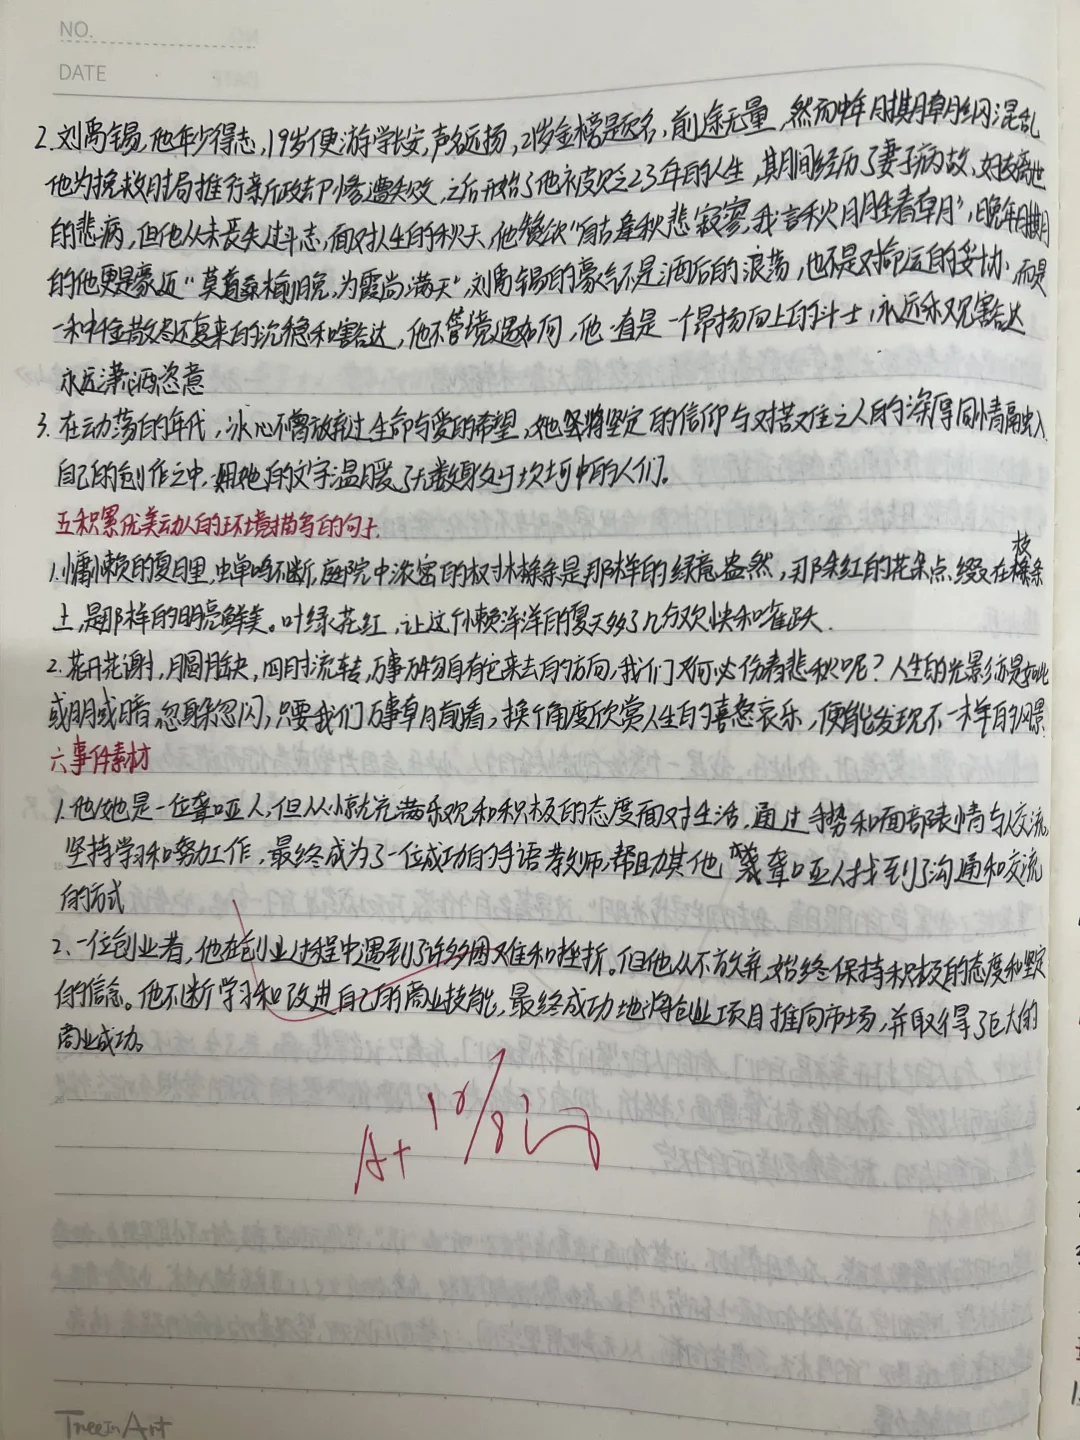 NO.
DATE
2. 刘禹锡，他年少得志，19岁便游学长安，声名远扬，21岁金榜题名，前途无量，然而中年时期朝纲混乱
他为挽救时局推行新政却惨遭失败，之后开始了他被贬23年的人生，其期间经历了妻子病故，好友离世
的悲痛，但他从未丧失过斗志，面对人生的秋天，他餐饮“自古逢秋悲寂寥，我言秋日胜春朝”，晚年时期
的他更是豪迈“莫道桑榆晚，为霞尚满天”刘禹锡的豪气不是酒后的浪荡，也不是对命运的妥协，而是
一种千金散尽还复来的沉稳和豁达，他不管境遇如何，他一直是一个昂扬向上的斗士，永远乐观豁达
永远潇洒恣意
3. 在动荡的年代，冰心不曾放弃过生命与爱的希望，她将坚定的信仰与对苦难之人的深厚同情融入
自己的创作之中，用她的文字温暖了无数身处于坎坷中的人们。
五积累优美动人的环境描写的句子
1. 慵懒的夏日里，虫蝉鸣不断，庭院中浓密的树林条是那样的绿意盎然，那朱红的花朵点缀在枝条
上，是那样的明亮鲜美。叶绿花红，让这个懒洋洋的夏天多了几分欢快和雀跃.
2. 花开花谢，月圆月缺，四时流转，万事万物自有它来去的方向，我们又何必伤春悲秋呢？人生的光影亦是如此
或明或暗，忽身忽闪，只要我们万事朝前看，换个角度欣赏人生的喜怒哀乐，便能发现不一样的风景
六事件素材
1. 他/她是一位聋哑人，但从小就充满乐观和积极的态度面对生活，通过手势和面部表情与人交流，
坚持学习和努力工作，最终成为了一位成功的手语教师，帮助其他聋哑人找到了沟通和交流
的方式
2. 一位创业者，他在创业过程中遇到了许多困难和挫折。但他从不放弃，始终保持积极的态度和坚定
的信念。他不断学习和改进自己的商业技能，最终成功地将创业项目推向市场，并取得了巨大的
商业成功。
A+ 10/8
TreeInArt